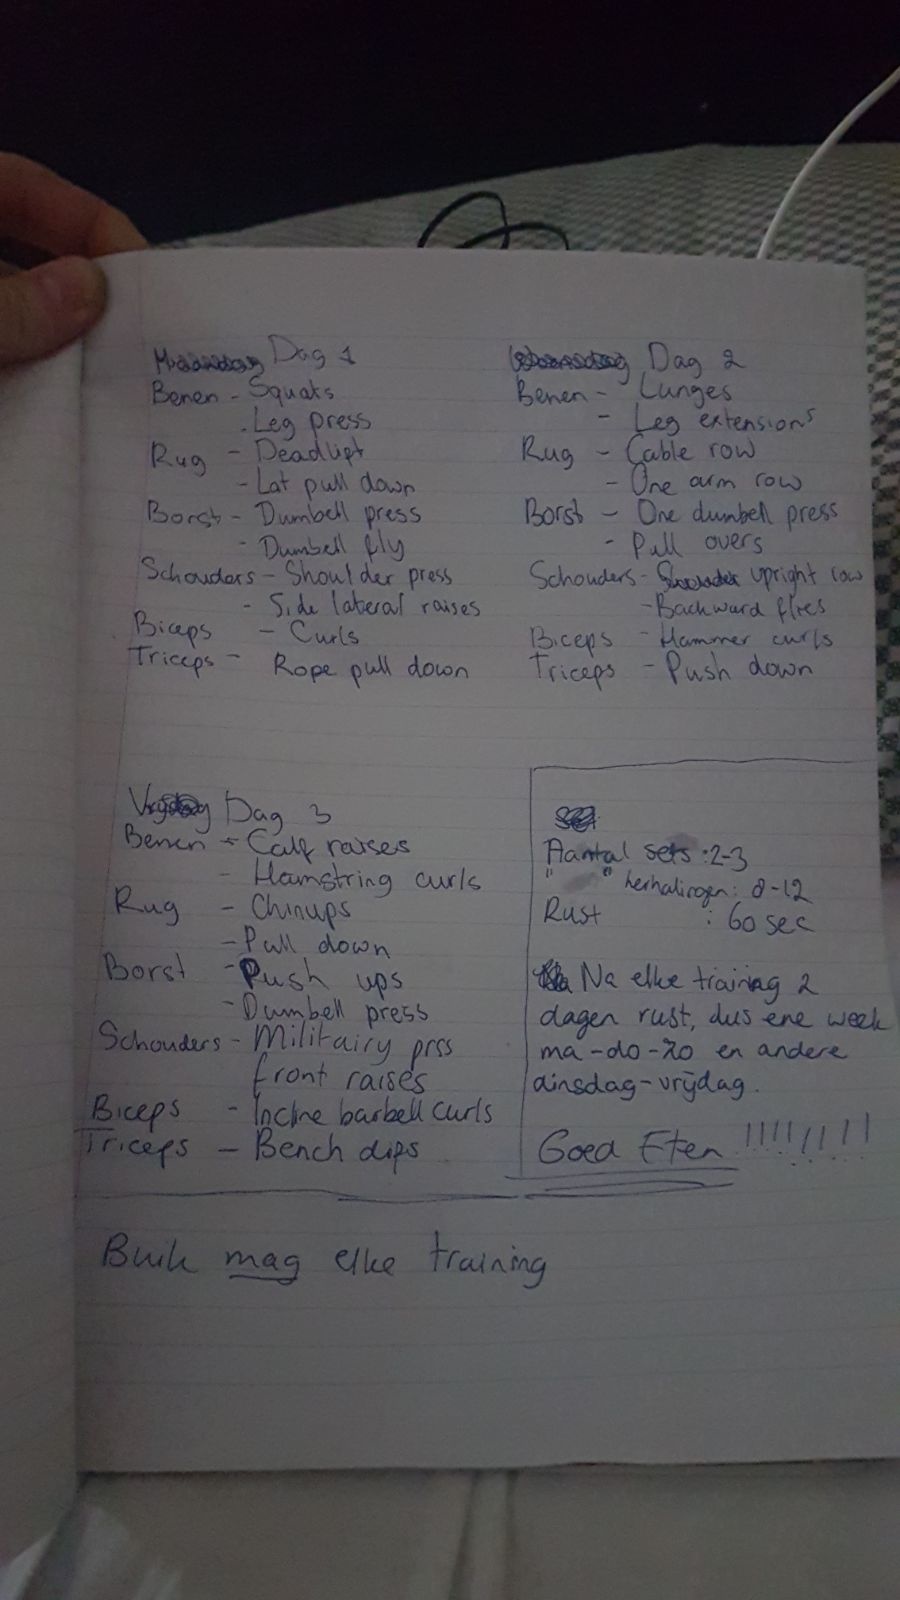 Dag 1
Benen - Squats
- Leg press
Rug - Deadlift
- Lat pull down
Borst - Dumbell press
- Dumbell fly
Schouders - Shoulder press
- Side lateral raises
Biceps - Curls
Triceps - Rope pull down
Dag 2
Benen - Lunges
- Leg extensions
Rug - Cable row
- One arm row
Borst - One dumbell press
- Pull overs
Schouders - Upright row
- Backward flies
Biceps - Hammer curls
Triceps - Push down
Dag 3
Benen - Calf raises
- Hamstring curls
Rug - Chinups
- Pull down
Borst - Push ups
- Dumbell press
Schouders - Militairy prss
front raises
Biceps - Incline barbell curls
Triceps - Bench dips
Aantal sets : 2-3
" " herhalingen : 8-12
Rust : 60 sec
Na elke training 2
dagen rust, dus ene week
ma-do-zo en andere
dinsdag-vrijdag.
Goed Eten !!!!!!!!
Buik mag elke training